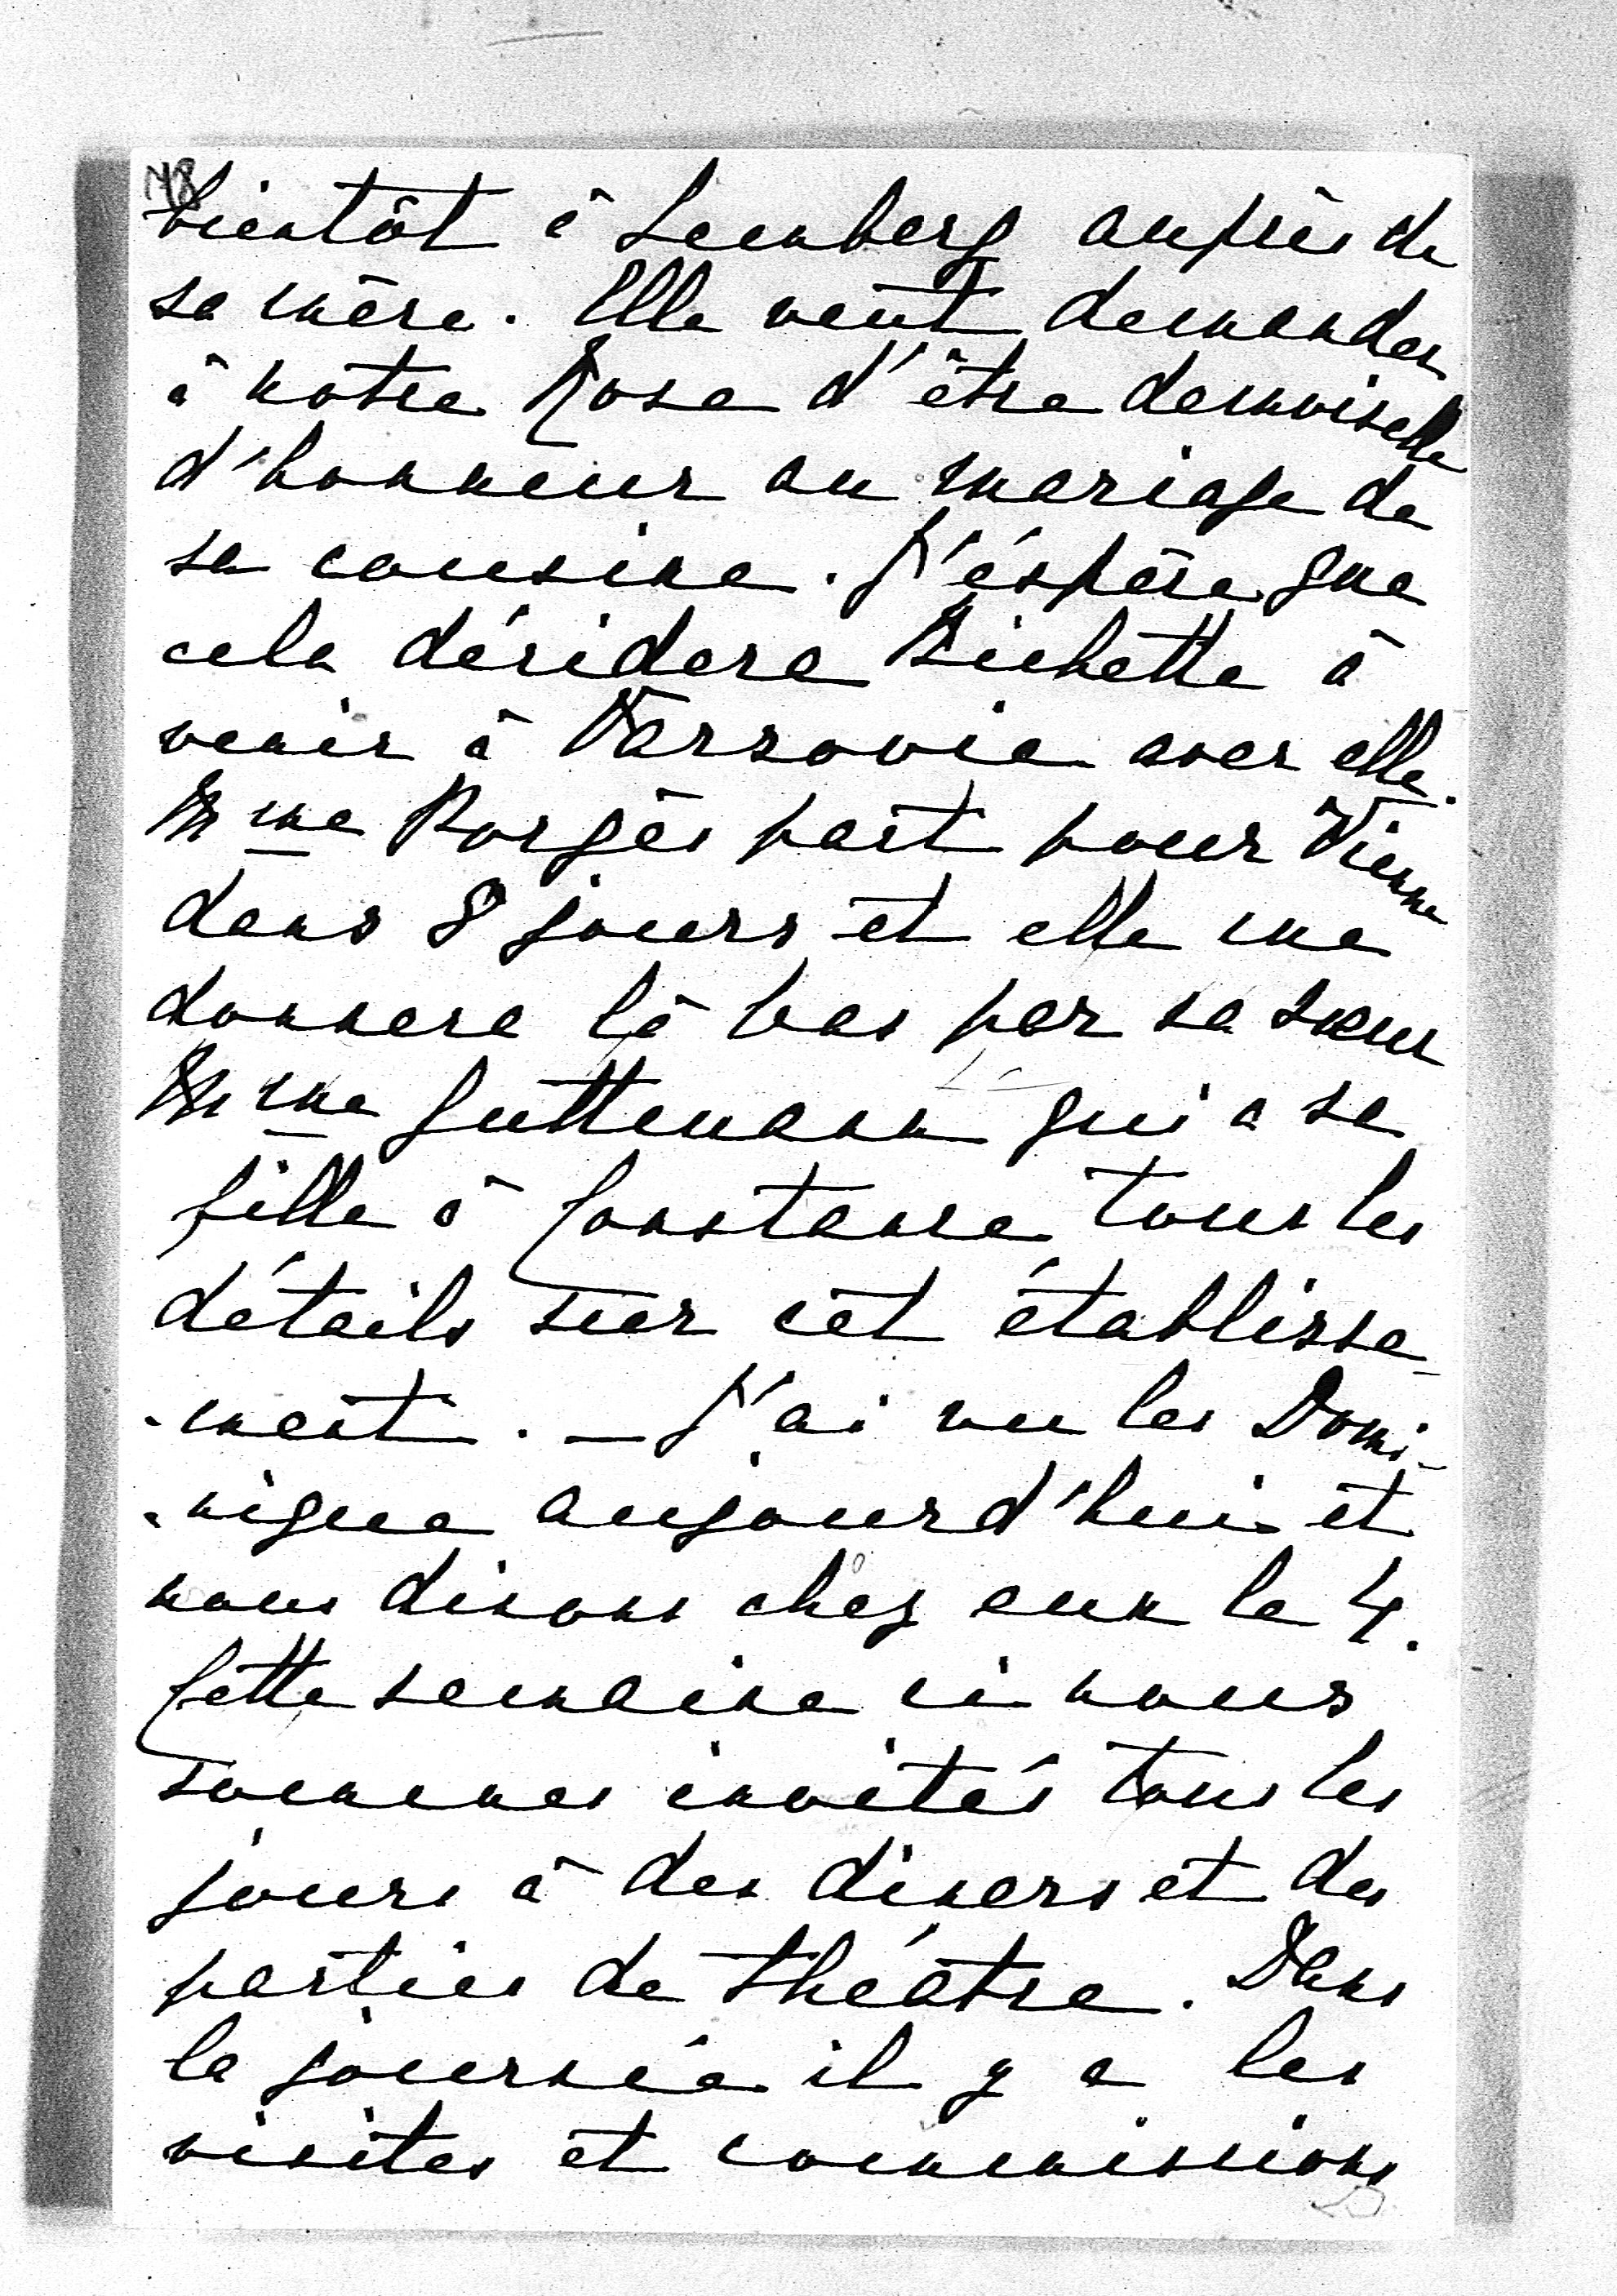 48
bientôt à Lemberg auprès de
sa mère. Elle veut demander
à notre Rose d'être demoiselle
d'honneur au mariage de
sa cousine. J'éspère que
cela déridera Bichette à
venir à Varsovie avec elle.
Mme Porgès part pour Vienne
dans 8 jours et elle me
donnera là bas par sa sœur
Mme Guttmann qui a sa
fille à Constance tous les
détails sur cet établisse-
-ment. — J'ai vu les Domi-
-nique aujourd'hui et
nous dinons chez eux le 4.
Cette semaine ci nous
sommes invités tous les
jours à des diners et des
parties de théâtre. Dans
la journée il y a les
visites et commissions